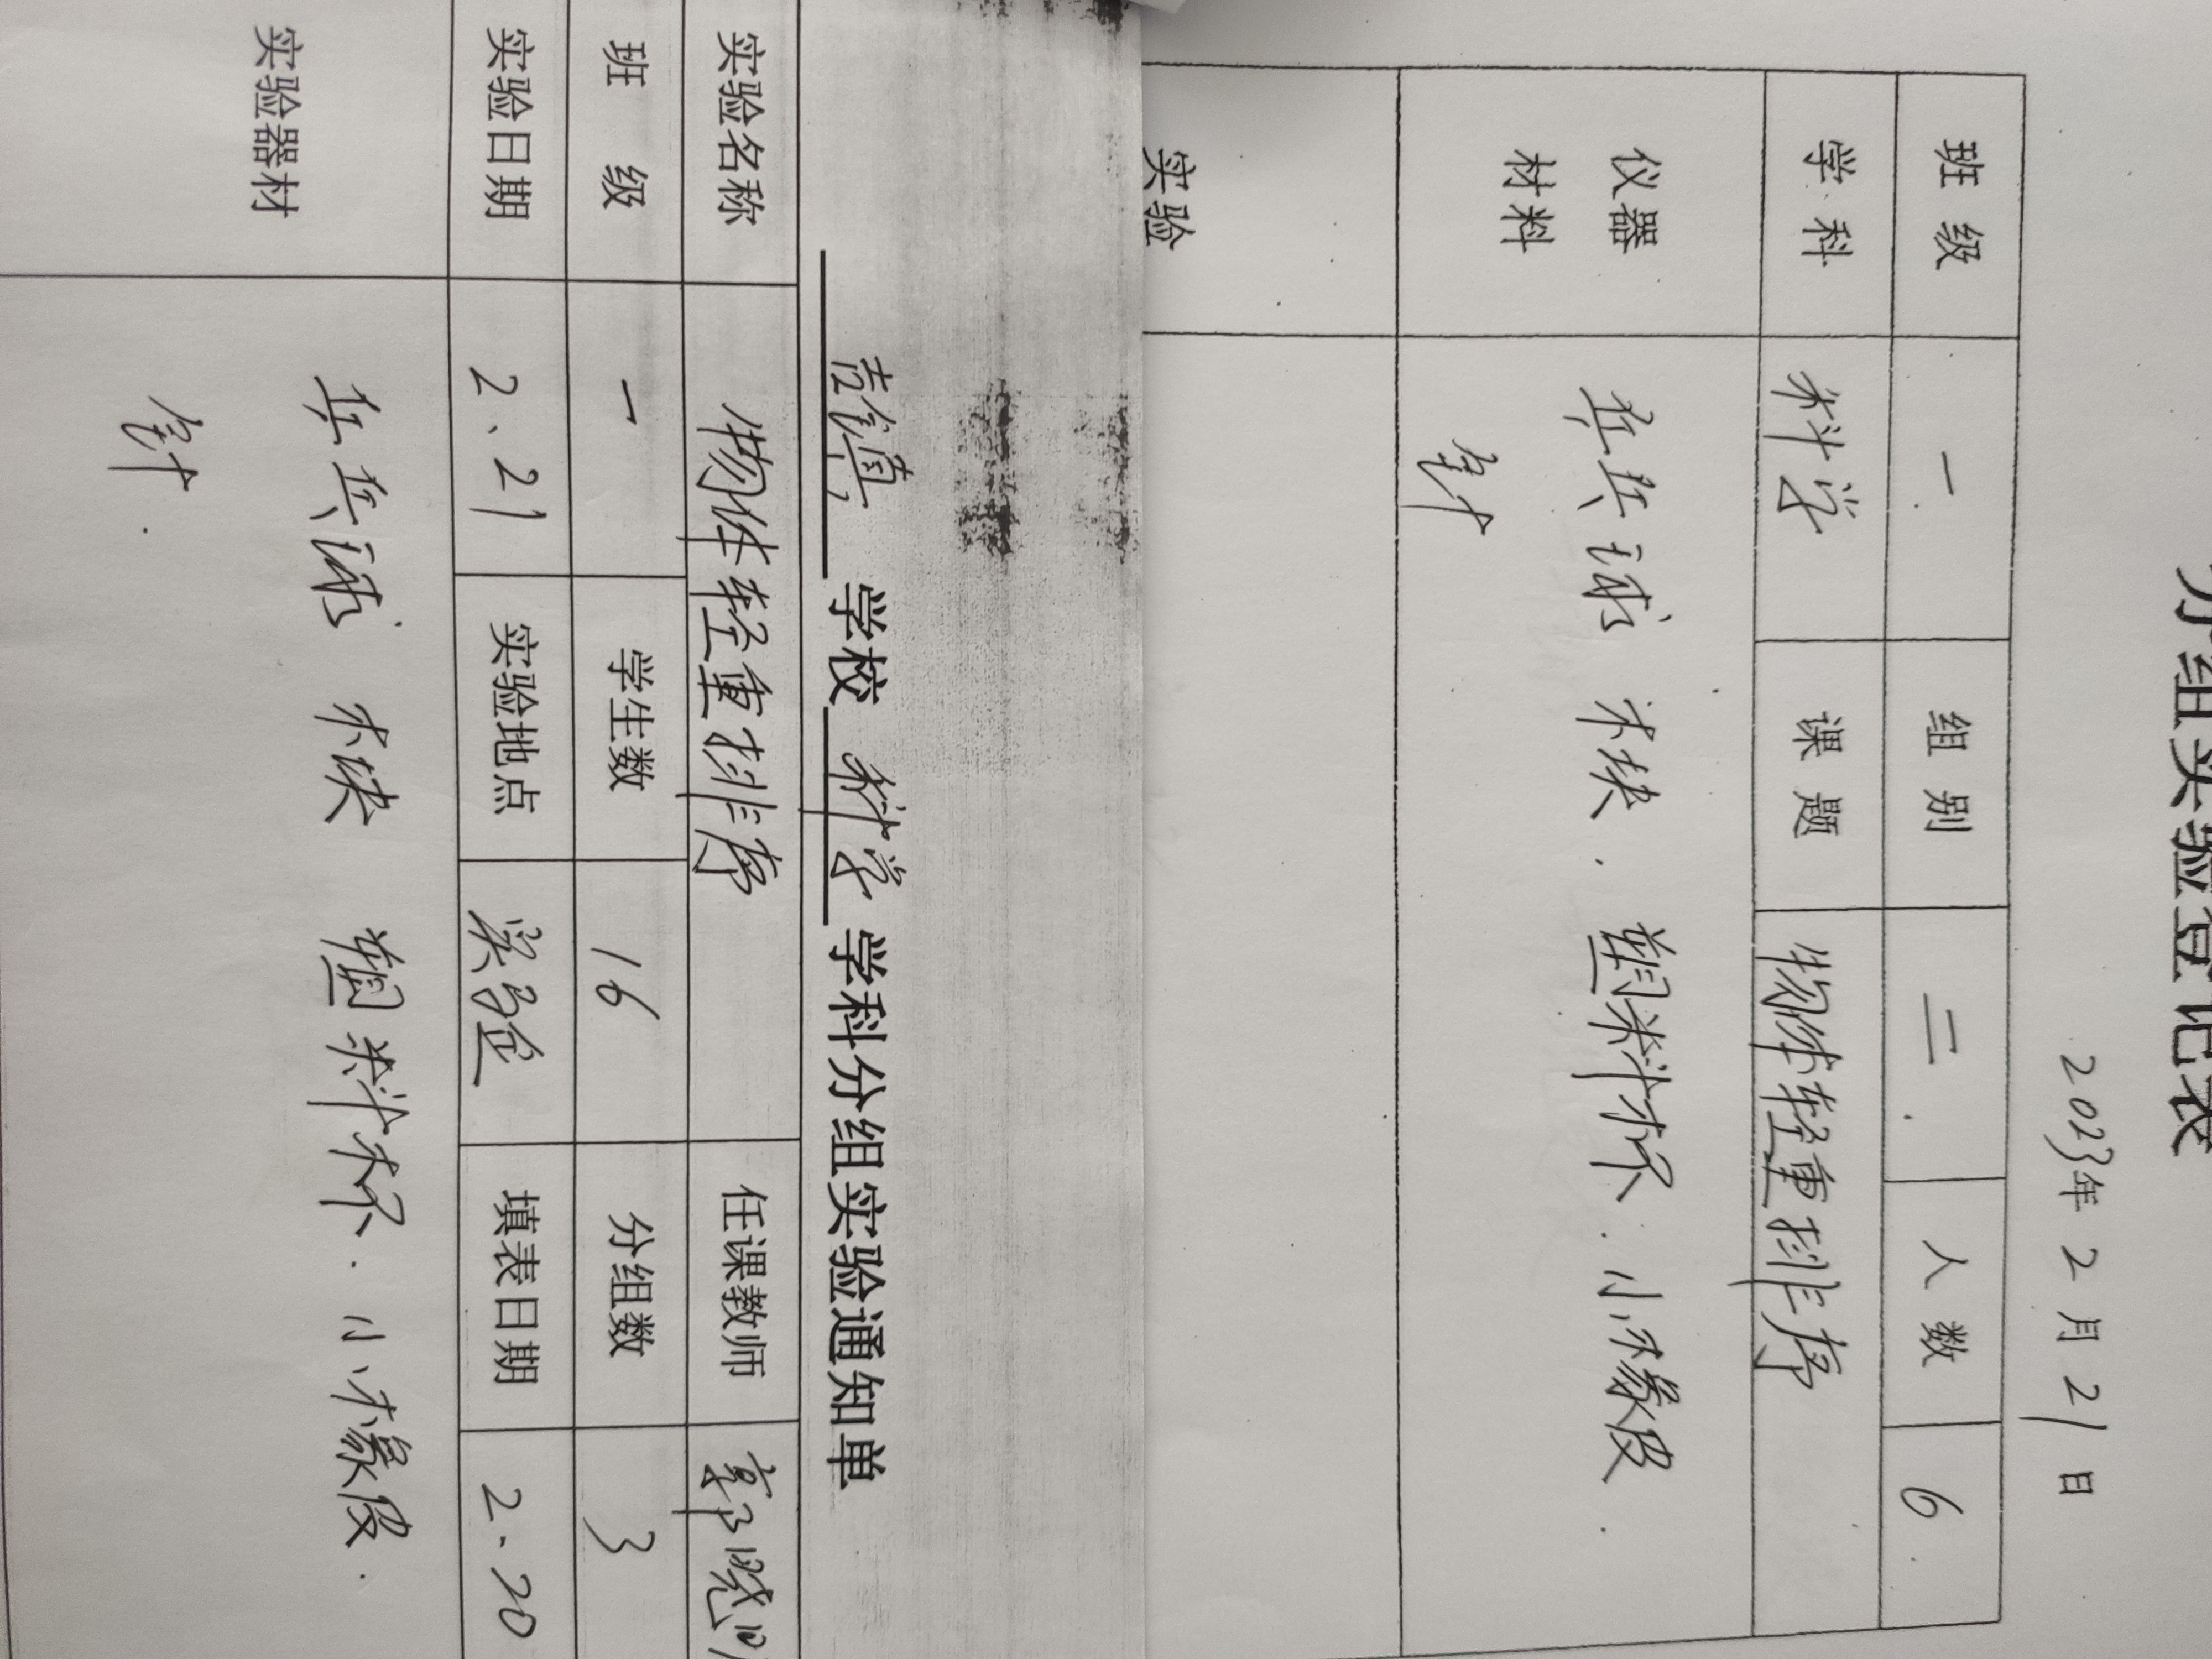 分组实验登记表
2023年 2 月 21 日
班 级 一 组 别 二 人 数 6
学 科 科学 课 题 物体轻重排序
仪器 乒乓球 木块 塑料杯 小橡皮
材料 针
实验
学校 科学 学科分组实验通知单
实验名称 物体轻重排序 任课教师
班 级 一 学生数 16 分组数 3
实验日期 2、21 实验地点 实验 填表日期 2、20
乒乓球 木块 塑料杯 小橡皮
实验器材
针